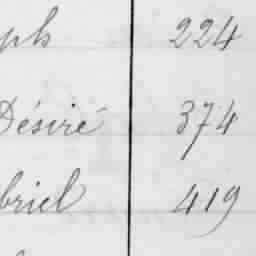 ph 224
Désiré 374
briel 419